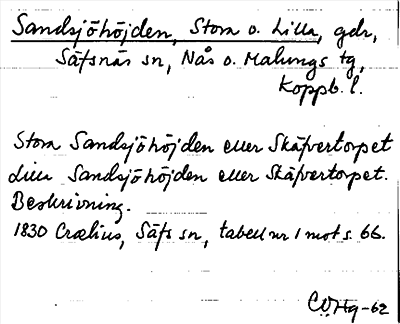 Sandsjöhöjden, Stora o. Lilla, gdr,
Säfsnäs sn, Nås o. Malungs tg,
Koppb. l.
Stora Sandsjöhöjden eller Skäfvertorpet
Lilla Sandsjöhöjden eller Skäfvertorpet.
Beskrivning.
1830 Crælius, Säfs sn, tabell nr 1 mot s. 66.
C.O.Hg-62